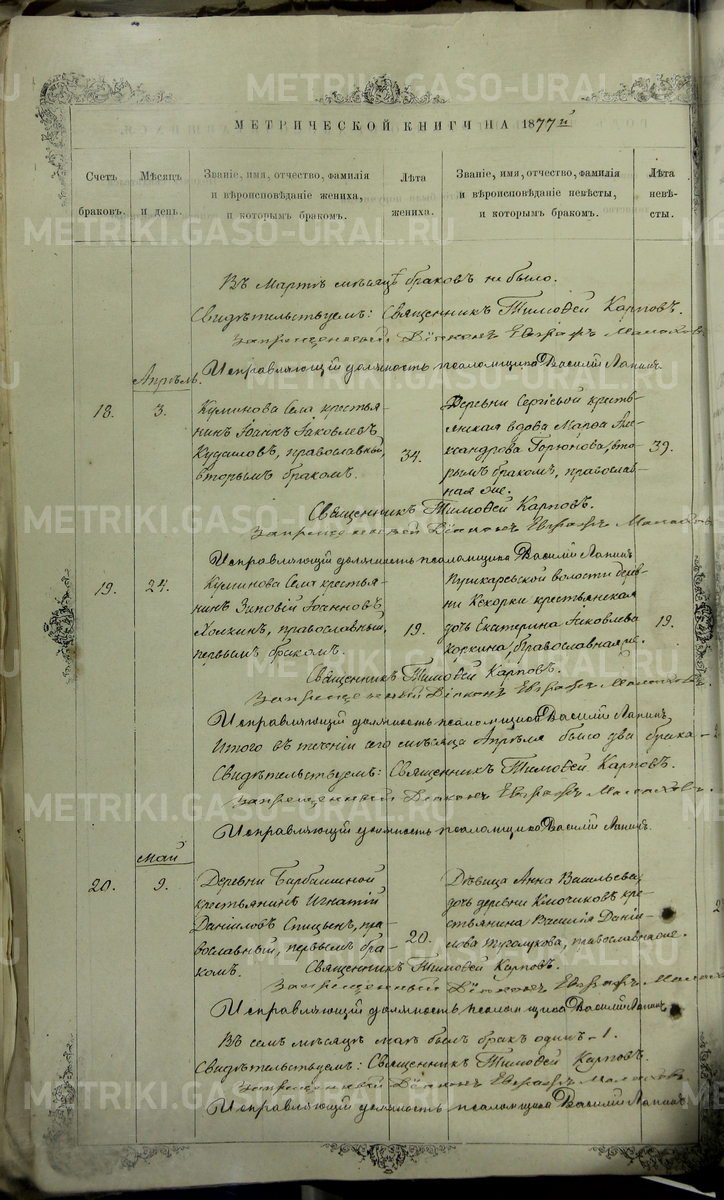 METRIKI.GASO-URAL.RU
МЕТРИЧЕСКОЙ КНИГИ НА 1877й
Счетъ браковъ.
Мѣсяцъ и день.
Званіе, имя, отчество, фамилія и вѣроисповѣданіе жениха, и которымъ бракомъ.
Лѣта жениха.
Званіе, имя, отчество, фамилія и вѣроисповѣданіе невѣсты, и которымъ бракомъ.
Лѣта невѣсты.
Въ Мартѣ мѣсяцѣ браковъ не было.
Свидѣтельствуемъ: Священникъ Тимоѳей Карповъ.
Запрещенный Діяконъ Евграфъ
Исправляющій должность псаломщика Василій Лапинъ.
Апрѣль.
18.
3.
Куминова Села крестья-
нинъ Іоаннъ Іаковлевъ
православный,
вторымъ бракомъ.
34.
Деревни крестья-
янская вдова Марѳа Але-
ксандрова Горюнова, вто-
рымъ бракомъ, православ-
ная же.
39.
Священникъ Тимоѳей Карповъ.
Запрещенный Діяконъ Евграфъ
Исправляющій должность псаломщика Василій Лапинъ
19.
24.
Куминова Села крестья-
нинъ Зиновій Іоанновъ
православный,
первымъ бракомъ.
19.
волости дерев-
ни крестьянская
дочь Екатерина Іаковлева
православная же.
19.
Священникъ Тимоѳей Карповъ.
Запрещенный Діяконъ Евграфъ
Исправляющій должность псаломщика Василій Лапинъ,
Итого въ теченіи сего мѣсяца Апрѣля было два брака-
Свидѣтельствуемъ: Священникъ Тимоѳей Карповъ.
Запрещенный Діяконъ Евграфъ
Исправляющій должность псаломщика Василій Лапинъ.
Май
20.
9.
Деревни
крестьянинъ Игнатій
Даніиловъ Спицынъ, пра-
вославный, первымъ бра-
комъ.
20.
Дѣвица Анна Васильева,
дочь деревни кре-
стьянина Василія Даніи-
лова православная же.
Священникъ Тимоѳей Карповъ.
Запрещенный Діяконъ Евграфъ
Исправляющій должность псаломщика Василій Лапинъ
Въ семъ мѣсяцѣ маѣ былъ бракъ одинъ - 1.
Свидѣтельствуемъ: Священникъ Тимоѳей Карповъ.
Запрещенный Діяконъ Евграфъ
Исправляющій должность псаломщика Василій Лапинъ